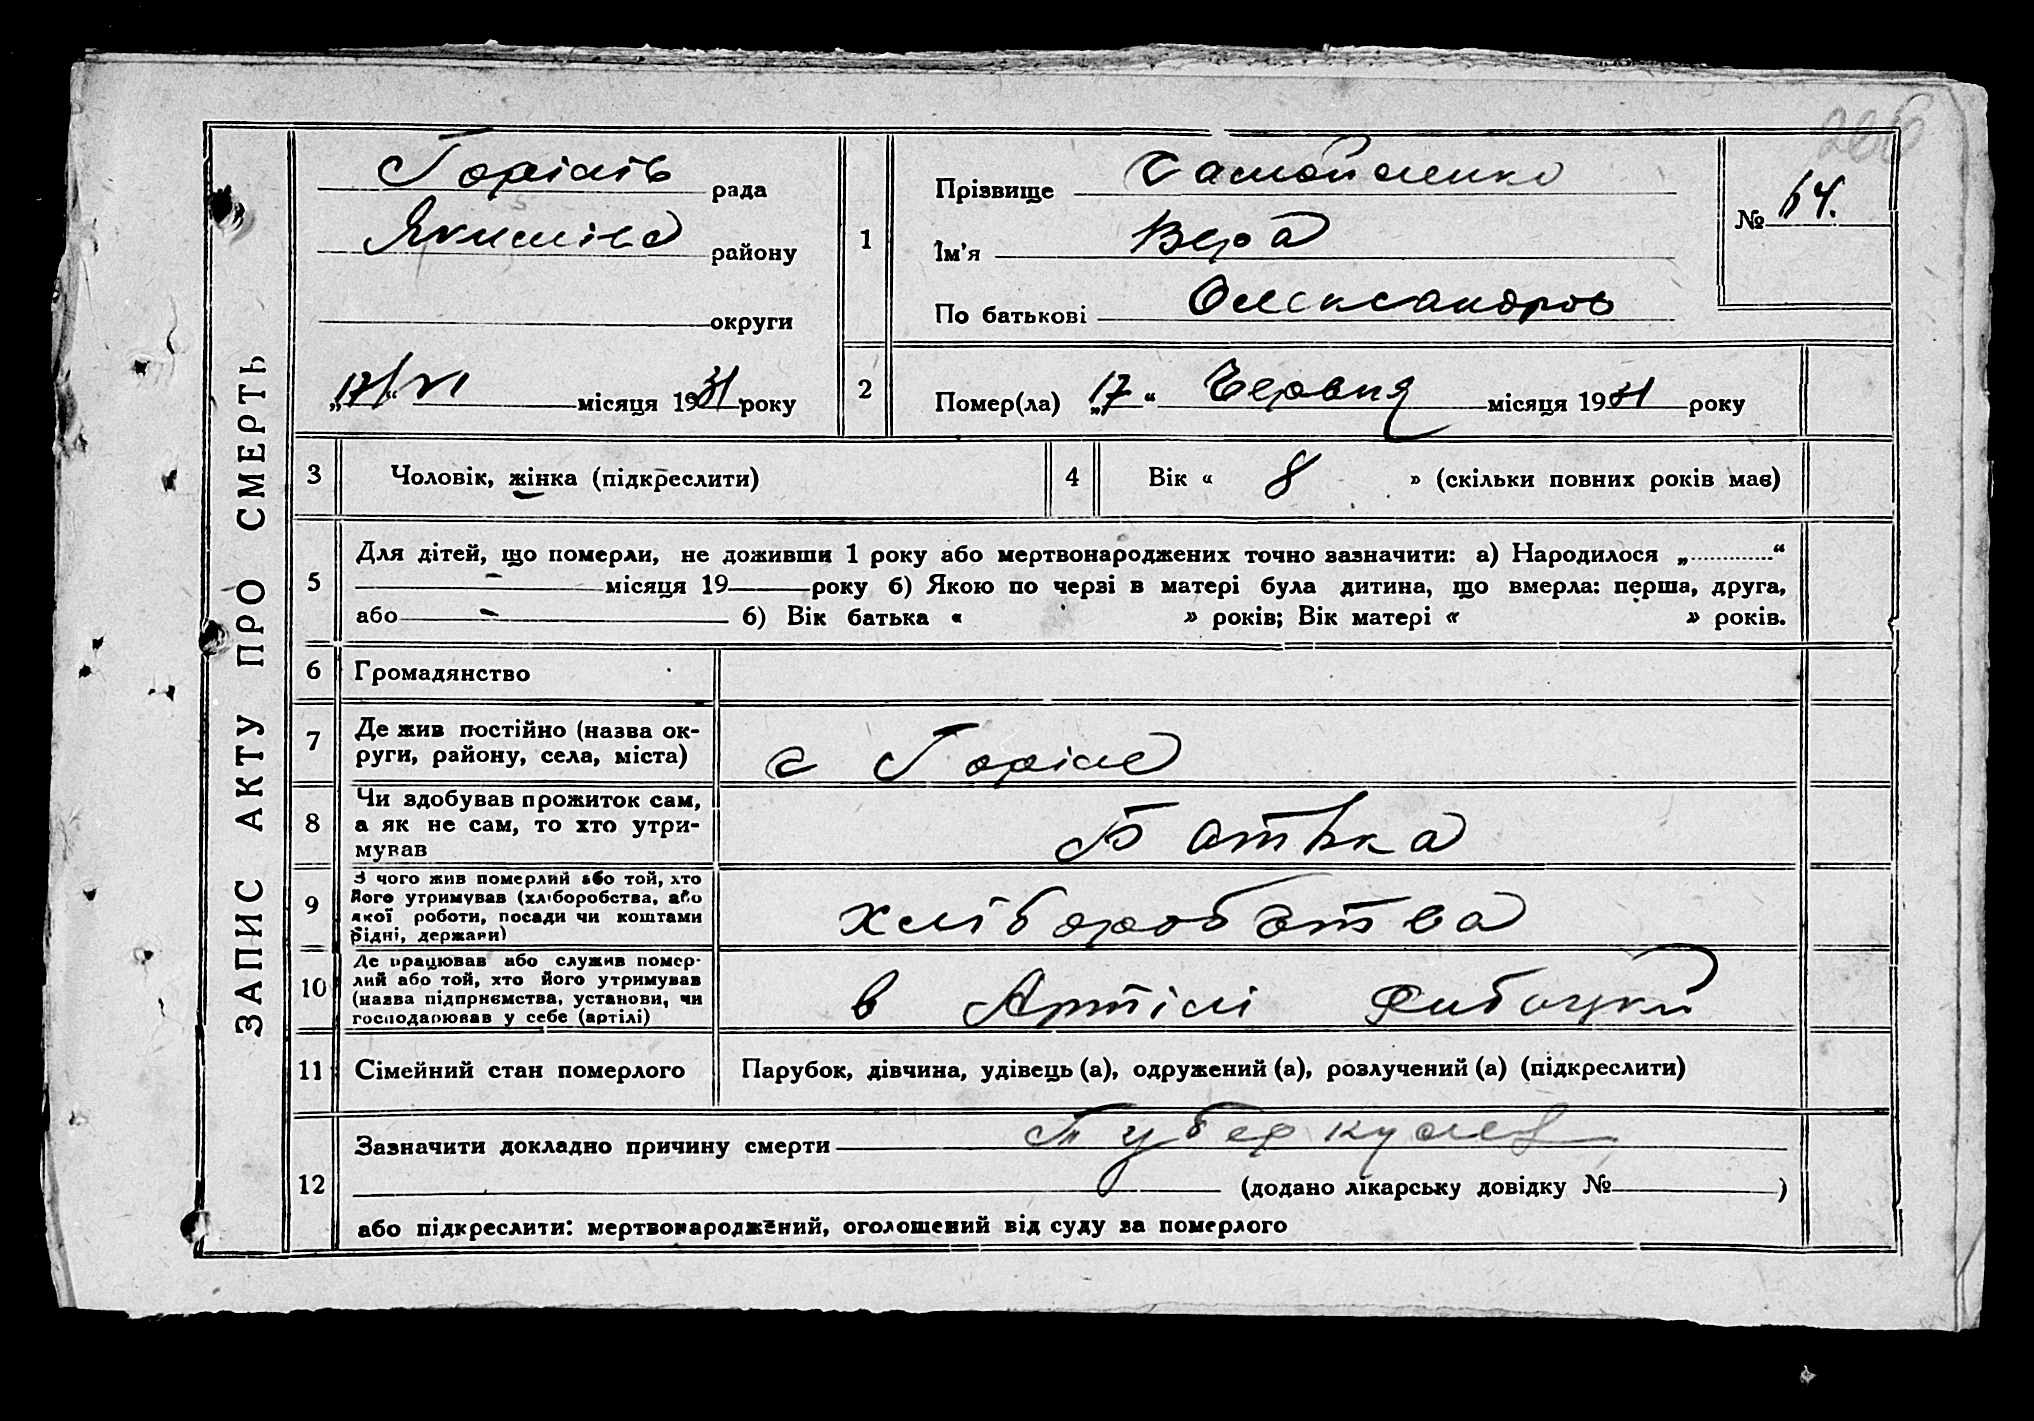 266
ЗАПИС АКТУ ПРО СМЕРТЬ
Горілів рада
Якиміва району
округи
„17/“ VI місяця 1931 року
1
Прізвище Самойленко
Ім'я Вера
По батькові Олександров
№ 64.
2
Помер(ла) „17“ Червня місяця 1931 року
3 Чоловік, жінка (підкреслити)
4 Вік « 8 » (скільки повних років має)
5
Для дітей, що померли, не доживши 1 року або мертвонароджених точно зазначити: а) Народилося „............“
— місяця 19 року б) Якою по черзі в матері була дитина, що вмерла: перша, друга,
або — б) Вік батька « » років; Вік матері « » років.
6 Громадянство
7 Де жив постійно (назва ок-
руги, району, села, міста)
с Горіле
8 Чи здобував прожиток сам,
а як не сам, то хто утри-
мував
Батька
9 З чого жив померлий або той, хто
його утримував (хліборобства, або
якої роботи, посади чи коштами
рідні, держави)
хліборобства
10 Де працював або служив помер-
лий або той, хто його утримував
(назва підприємства, установи, чи
господарював у себе (артілі)
в Артілі
11 Сімейний стан померлого
Парубок, дівчина, удівець (а), одружений (а), розлучений (а) (підкреслити)
12
Зазначити докладно причину смерти Туберкулез
(додано лікарську довідку № )
або підкреслити: мертвонароджений, оголошений від суду за померлого